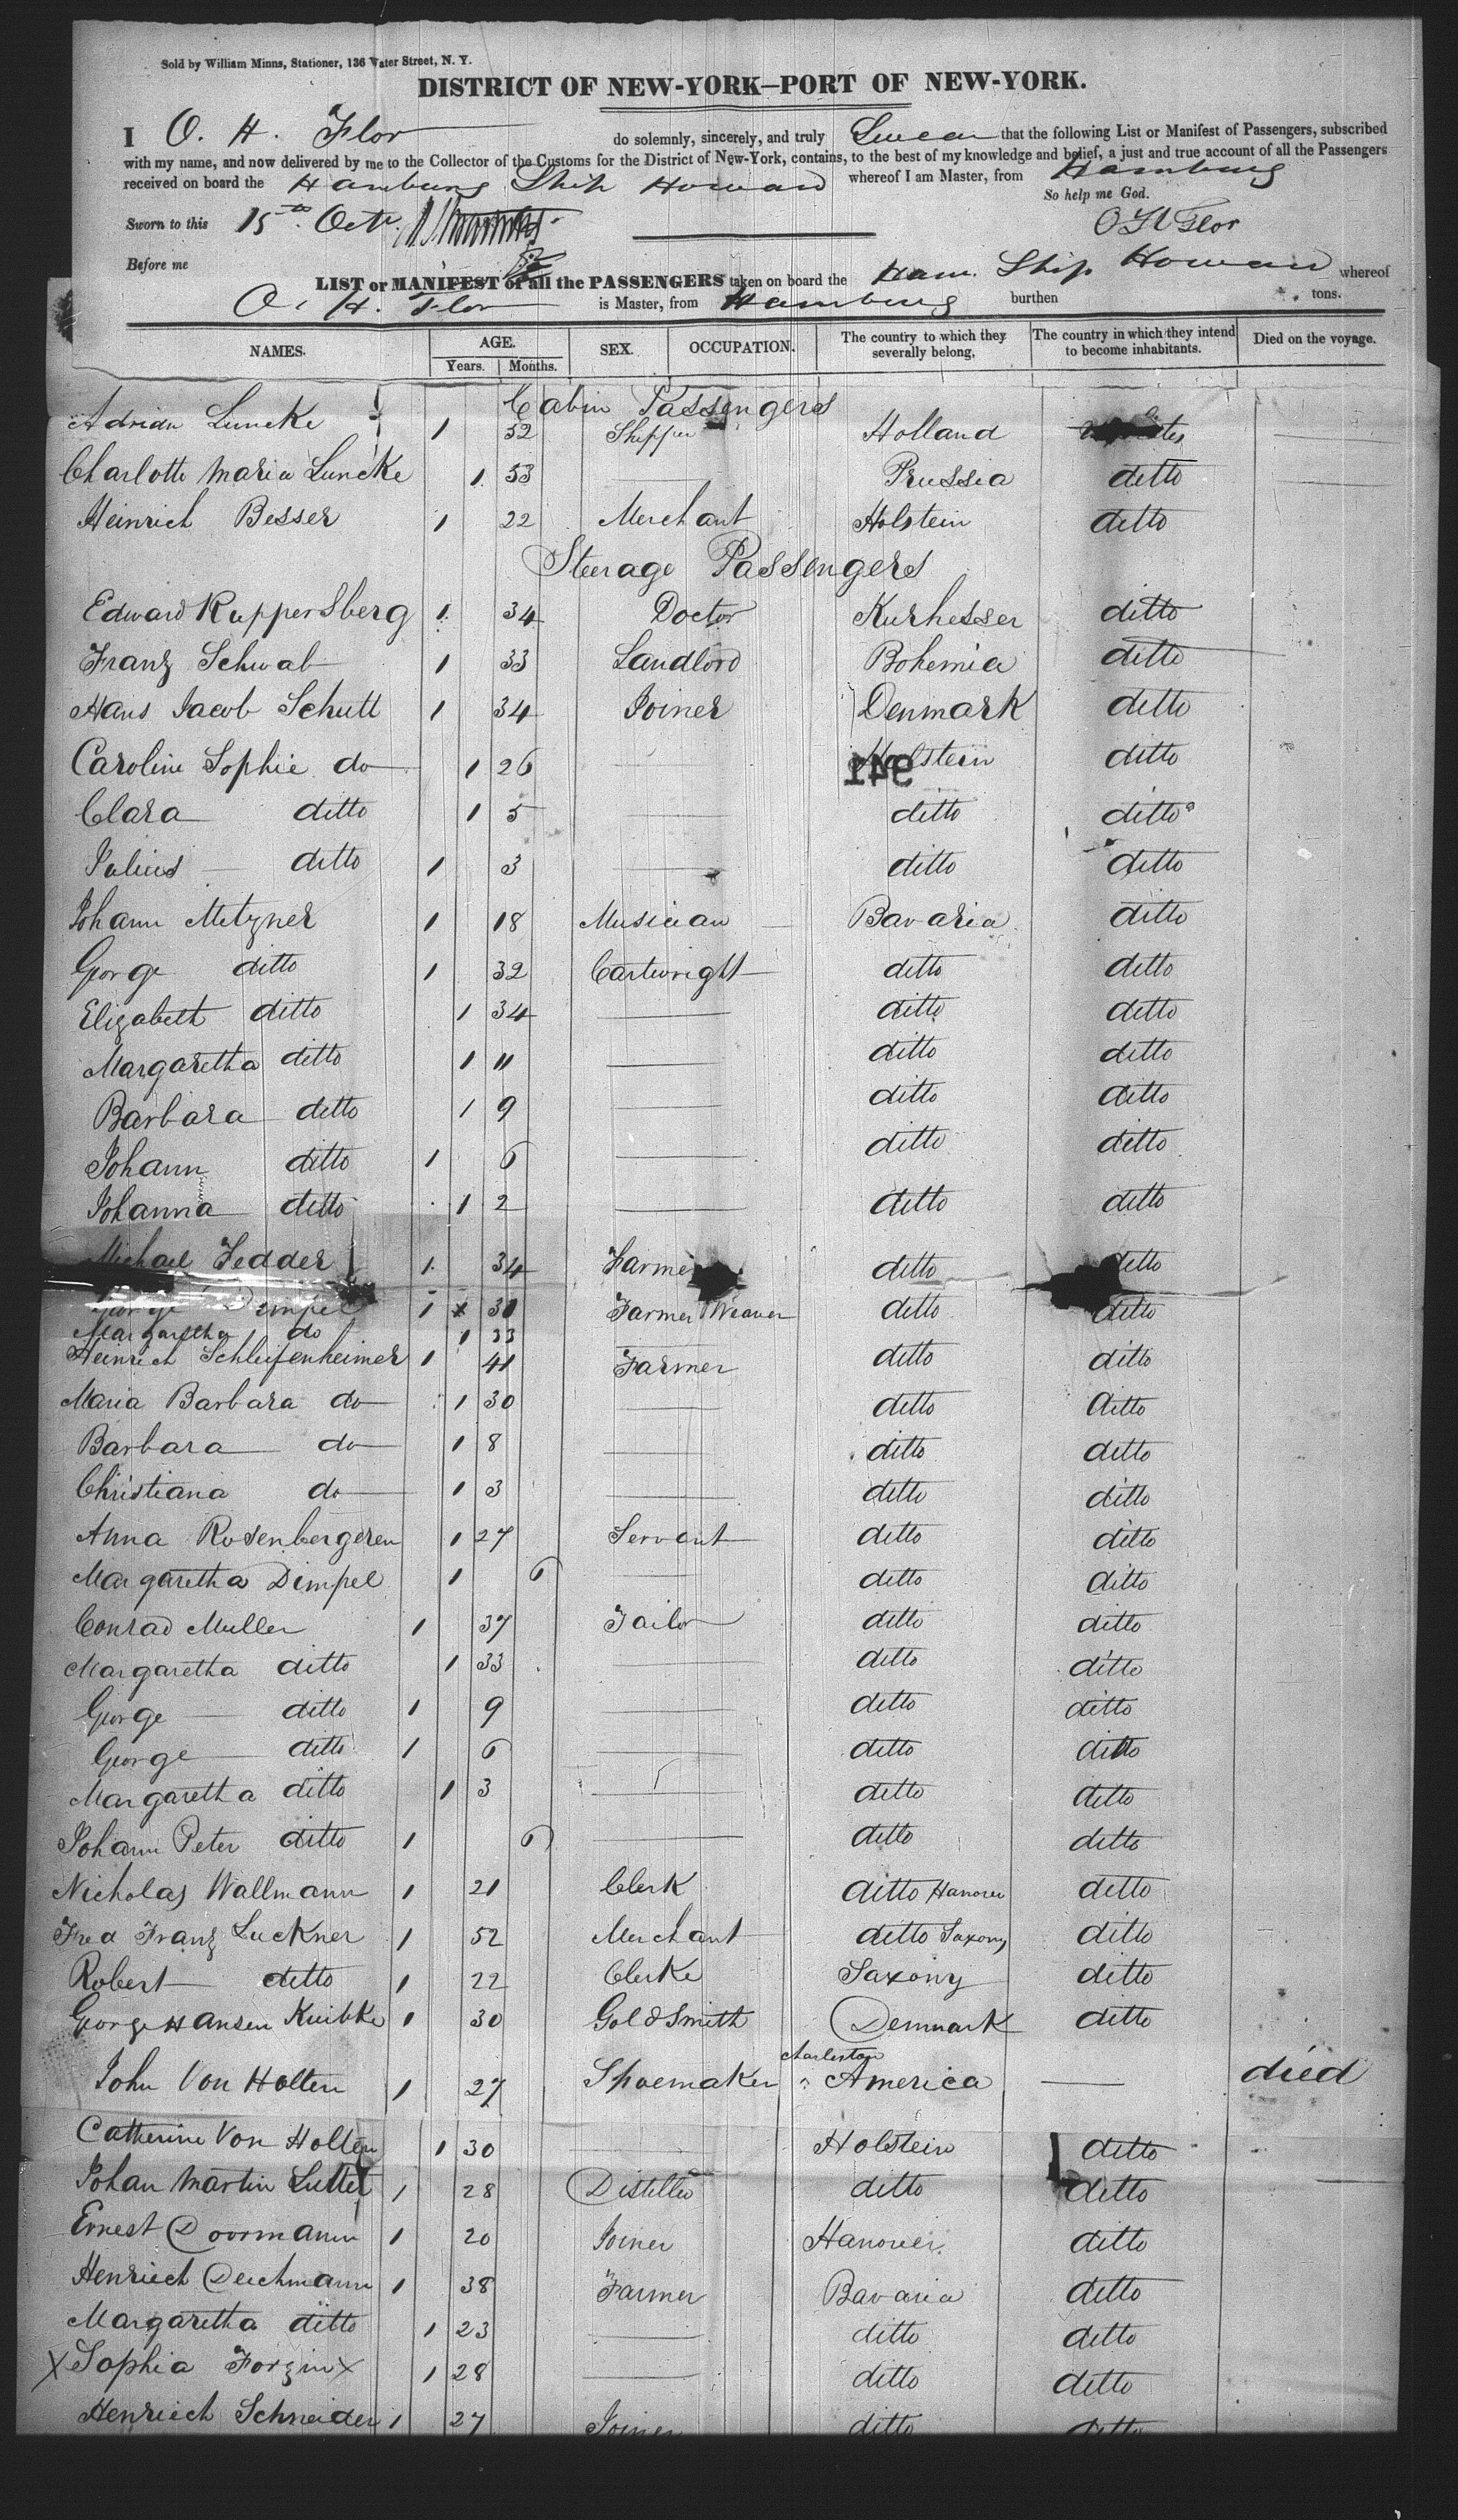 Sold by William Minns, Stationer, 136 Water Street, N. Y.
DISTRICT OF NEW-YORK—PORT OF NEW-YORK.
I O. H. Flor do solemnly, sincerely, and truly Swear that the following List or Manifest of Passengers, subscribed
with my name, and now delivered by me to the Collector of the Customs for the District of New-York, contains, to the best of my knowledge and belief, a just and true account of all the Passengers
received on board the Hamburg Ship Howard whereof I am Master, from Hamburg
So help me God.
Sworn to this 15th Octr. O H Flor
Before me
LIST or MANIFEST of all the PASSENGERS taken on board the Ham. Ship Howard whereof
O. H. Flor is Master, from Hamburg burthen tons.
NAMES. AGE. Years. Months. SEX. OCCUPATION. The country to which they severally belong. The country in which they intend to become inhabitants. Died on the voyage.
Cabin Passengers
Adrian Luncke 1 52 Shipper Holland
Charlotte Maria Luncke 1 53 Prussia ditto
Heinrich Besser 1 22 Merchant Holstein ditto
Steerage Passengers
Edward Ruppersberg 1 34 Doctor Kurhesser ditto
Franz Schwab 1 33 Landlord Bohemia ditto
Hans Jacob Schutt 1 34 Joiner Denmark ditto
Caroline Sophie do 1 26 Holstein ditto
941
Clara ditto 1 5 ditto ditto
Julius ditto 1 3 ditto ditto
Johann Metzner 1 18 Musician Bavaria ditto
George ditto 1 32 Cartwright ditto ditto
Elizabeth ditto 1 34 ditto ditto
Margaretha ditto 1 11 ditto ditto
Barbara ditto 1 9 ditto ditto
Johann ditto 1 6 ditto ditto
Johanna ditto 1 2 ditto ditto
Michael Fedder 1 34 Farmer ditto ditto
George Dimpel 1 x 30 Farmer Weaver ditto ditto
Margaretha do 1 33
Heinrich Schleifenheimer 1 41 Farmer ditto ditto
Maria Barbara do 1 30 ditto ditto
Barbara do 1 8 ditto ditto
Christiana do 1 3 ditto ditto
Anna Rosenbergeren 1 27 Servant ditto ditto
Margaretha Dimpel 1 6 ditto ditto
Conrad Muller 1 37 Tailor ditto ditto
Margaretha ditto 1 33 ditto ditto
George ditto 1 9 ditto ditto
George ditto 1 6 ditto ditto
Margaretha ditto 1 3 ditto ditto
Johann Peter ditto 1 6 ditto ditto
Nicholas Wallmann 1 21 Clerk ditto Hanover ditto
Fred Franz Luckner 1 52 Merchant ditto Saxony ditto
Robert ditto 1 22 Clerke Saxony ditto
George Hansen Knibke 1 30 Goldsmith Denmark ditto
John Von Holten 1 27 Shoemaker Charleston America died
Catherine Von Holten 1 30 Holstein ditto
Johan Martin Luttet 1 28 Distiller ditto ditto
Ernest Doormann 1 20 Joiner Hanover ditto
Henriech Deichmann 1 38 Farmer Bavaria ditto
Margaretha ditto 1 23 ditto ditto
x Sophia Forzin x 1 28 ditto ditto
Henriech Schneider 1 27 Joiner ditto ditto